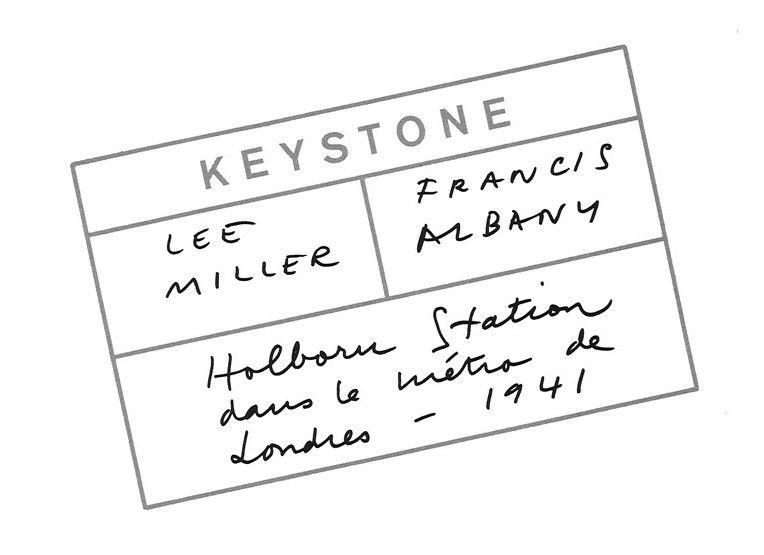 KEYSTONE
LEE
MILLER
FRANCIS
ALBANY
Holborn Station
dans le métro de
Londres – 1941